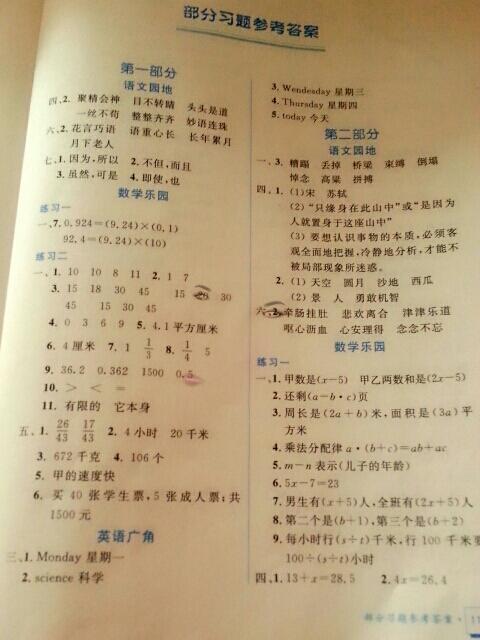 部分习题参考答案
第一部分
语文园地
四、2. 聚精会神 目不转睛 头头是道
一丝不苟 整整齐齐 妙语连珠
六、2. 花言巧语 语重心长 长年累月
月下老人
七、1. 因为,所以 2. 不但,而且
3. 虽然,可是 4. 即使,也
数学乐园
练习一
一、7. 0.924=(9.24)×(0.1)
92.4=(9.24)×(10)
练习二
一、1. 10 10 8 11 2. 1 7
3. 15 18 30 45 15 20 30
45 15 30 45
4. 0 3 6 9 5. 4.1平方厘米
6. 4厘米 7. 1 1/3 8. 1/4 5
9. 36.2 0.362 1500 0.5
10. > < =
11. 有限的 它本身
五、1. 26/43 17/43 2. 4小时 20千米
3. 672千克 4. 106个
5. 甲的速度快
6. 买40张学生票,5张成人票;共
1500元
英语广角
三、1. Monday 星期一
2. science 科学
3. Wendesday 星期三
4. Thursday 星期四
5. today 今天
第二部分
语文园地
一、3. 糟蹋 丢掉 桥梁 束缚 倒塌
悼念 高粱 拼搏
四、1. (1)宋 苏轼
(2)“只缘身在此山中”或“是因为
人就置身于这座山中”
(3)要想认识事物的本质,必须客
观全面地把握,冷静地分析,才能不
被局部现象所迷惑。
2. (1)天空 圆月 沙地 西瓜
(2)景 人 勇敢机智
六、2. 牵肠挂肚 悲欢离合 津津乐道
呕心沥血 心安理得 念念不忘
数学乐园
练习一
一、1. 甲数是(x-5) 甲乙两数和是(2x-5)
2. 还剩(a-b·c)页
3. 周长是(2a+b)米,面积是(3a)平
方米
4. 乘法分配律 a·(b+c)=ab+ac
5. m-n表示(儿子的年龄)
6. 5x-7=23
7. 男生有(x+5)人,全班有(2x+5)人
8. 第二个是(b+1),第三个是(b+2)
9. 每小时行(s÷t)千米,行100千米要
100÷(s÷t)小时
四、1. 13+x=28.5 2. 4x=26.4
部分习题参考答案·